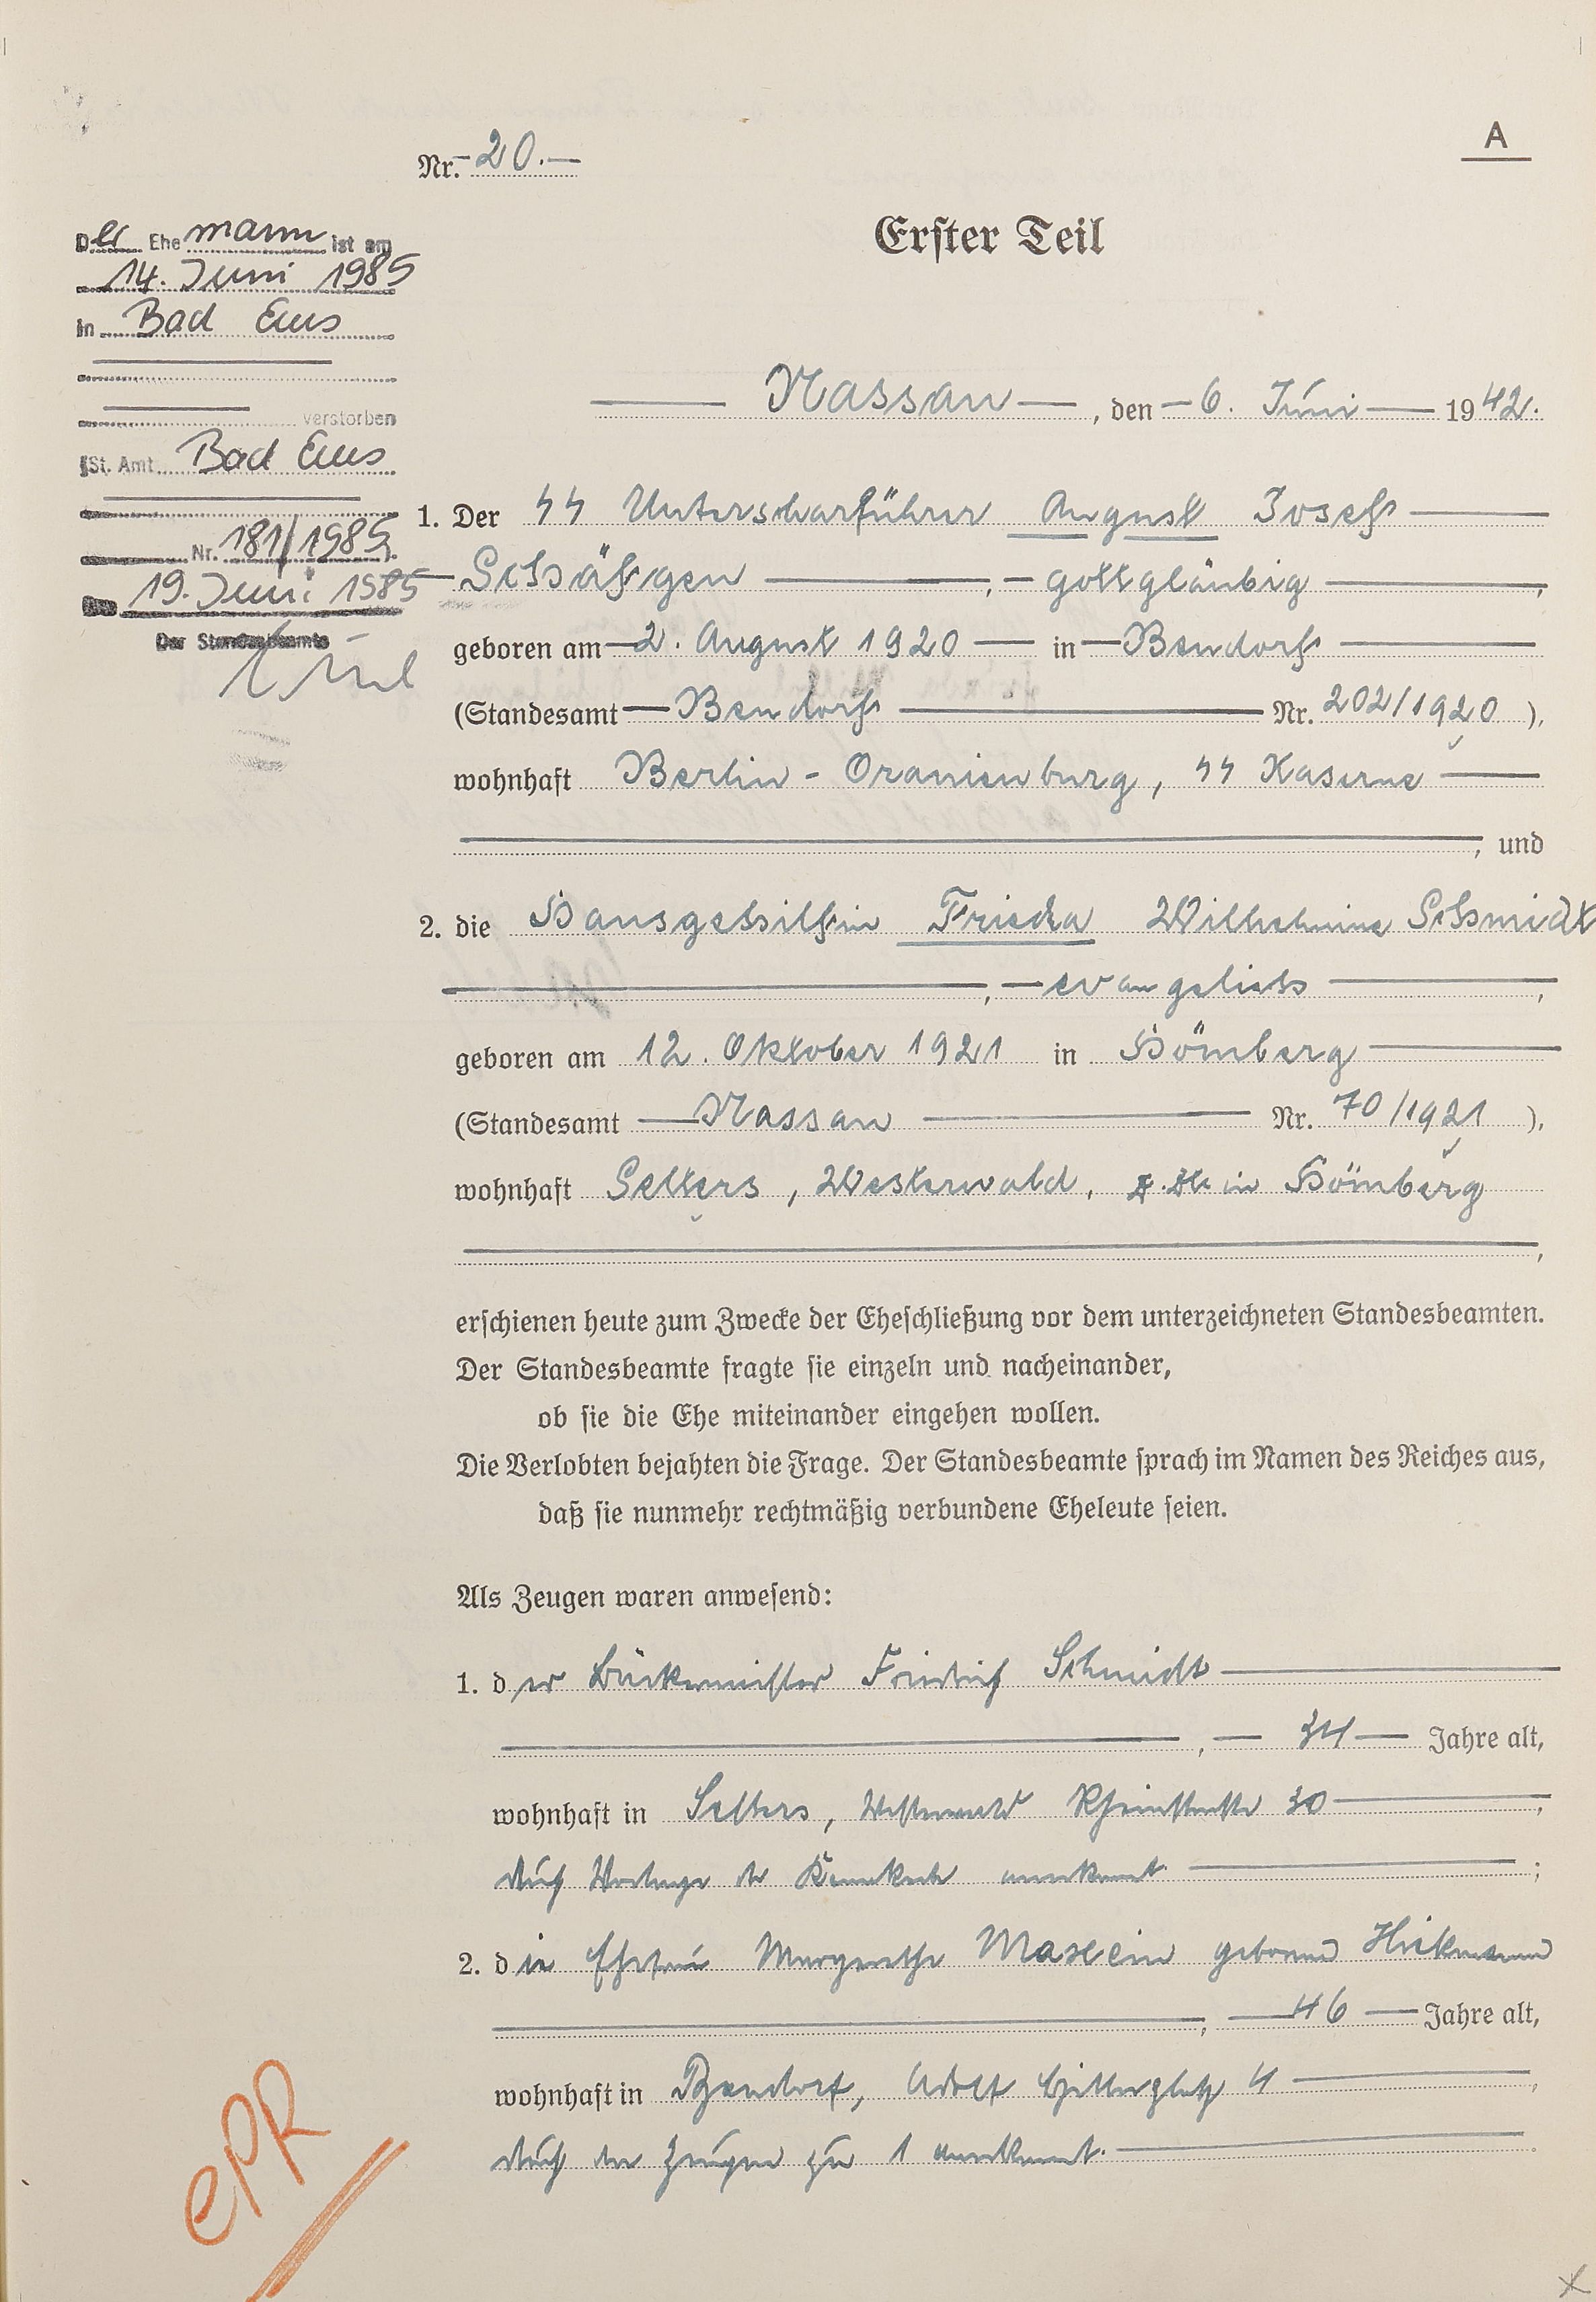 A
Nr. 20.
Erster Teil
Der Ehemann ist am
14. Juni 1985
in Bad Ems
verstorben
St. Amt Bad Ems
Nr. 181/1985.
19. Juni 1985
Der Standesbeamte
Nassau, den 6. Juni 1942.
1. Der SS Unterscharführer August Josef
Schäfgen, gottgläubig,
geboren am 2. August 1920 in Bendorf
(Standesamt Bendorf Nr. 202/1920),
wohnhaft Berlin - Oranienburg, SS Kaserne
, und
2. die Hausgehilfin Frieda Wilhelmine Schmidt
, evangelisch,
geboren am 12. Oktober 1921 in Hömberg
(Standesamt Nassau Nr. 70/1921),
wohnhaft Selters, Westerwald, z. Zt. in Hömberg
,
erschienen heute zum Zwecke der Eheschließung vor dem unterzeichneten Standesbeamten.
Der Standesbeamte fragte sie einzeln und nacheinander,
ob sie die Ehe miteinander eingehen wollen.
Die Verlobten bejahten die Frage. Der Standesbeamte sprach im Namen des Reiches aus,
daß sie nunmehr rechtmäßig verbundene Eheleute seien.
Als Zeugen waren anwesend:
1. der Bäckermeister Friedrich Schmidt
, 34 Jahre alt,
wohnhaft in Selters, Westerwald Rheinstraße 30,
durch Vorlage der Kennkarte anerkannt;
2. die Ehefrau Margarethe Maxein geborene
, 46 Jahre alt,
wohnhaft in Bendorf, Adolf Hitlerplatz 4,
durch den Zeugen zu 1 anerkannt.
ePR